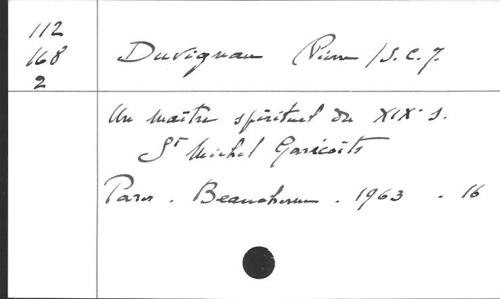 112
168
2
Duvignau Pierre /S.C.J.
Un maître spirituel du XIXe s.
St Michel Garicoïts
Paris. Beauchesne. 1963. 16